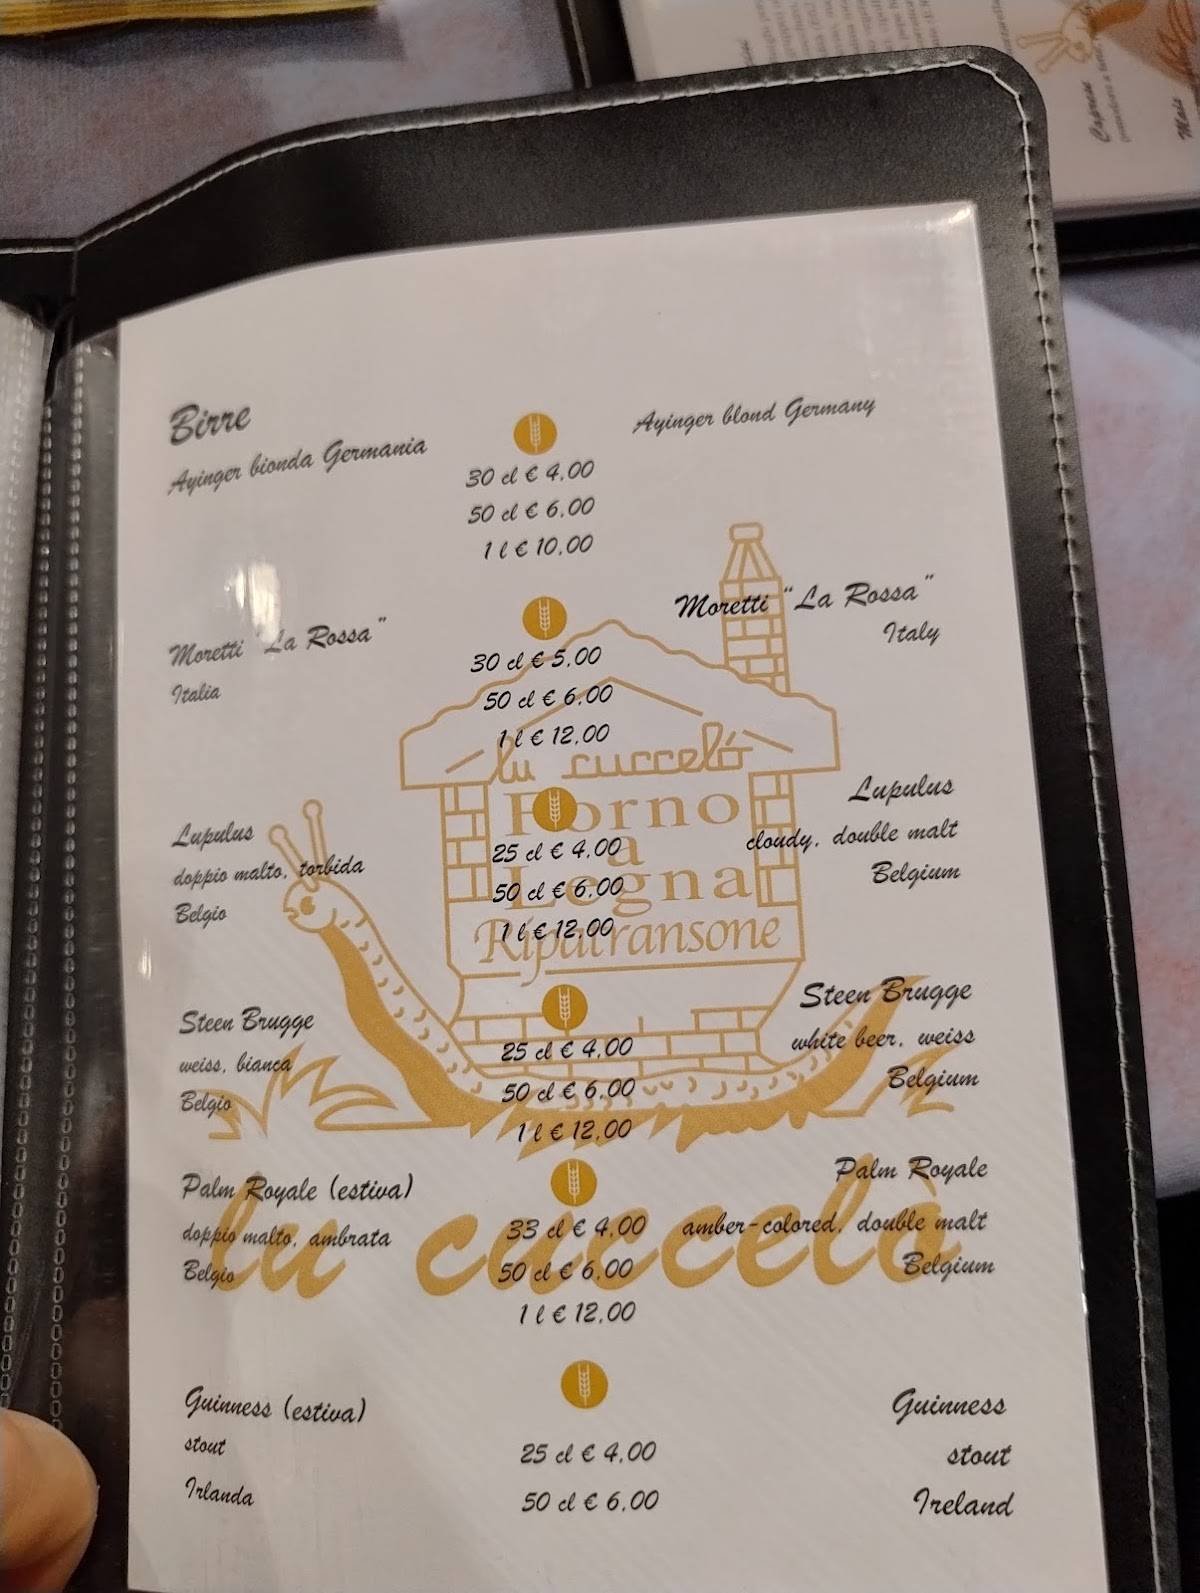 Birre
Ayinger bionda Germania
Ayinger blond Germany
30 cl € 4,00
50 cl € 6,00
1 l € 10,00
Moretti "La Rossa"
Italia
Moretti "La Rossa"
Italy
30 cl € 5,00
50 cl € 6,00
1 l € 12,00
lu cuccelò
Forno
a
Legna
Ripatransone
Lupulus
doppio malto, torbida
Belgio
Lupulus
cloudy, double malt
Belgium
25 cl € 4,00
50 cl € 6,00
1 l € 12,00
Steen Brugge
weiss, bianca
Belgio
Steen Brugge
white beer, weiss
Belgium
25 cl € 4,00
50 cl € 6,00
1 l € 12,00
Palm Royale (estiva)
doppio malto, ambrata
Belgio
Palm Royale
amber-colored, double malt
Belgium
33 cl € 4,00
50 cl € 6,00
1 l € 12,00
lu cuccelò
Guinness (estiva)
stout
Irlanda
Guinness
stout
Ireland
25 cl € 4,00
50 cl € 6,00
Caprese
Mais